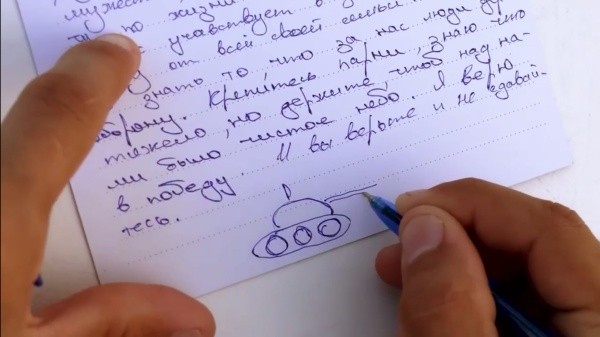 мужест
то по жизни
учавствует в
от всей своей семьи
знать то, что за нас люди дер
оборону. Крепитесь парни, знаю что
тяжело, но держите чтоб над на-
ми было чистое небо. Я верю
в победу. И вы верьте и не сдавай-
тесь.